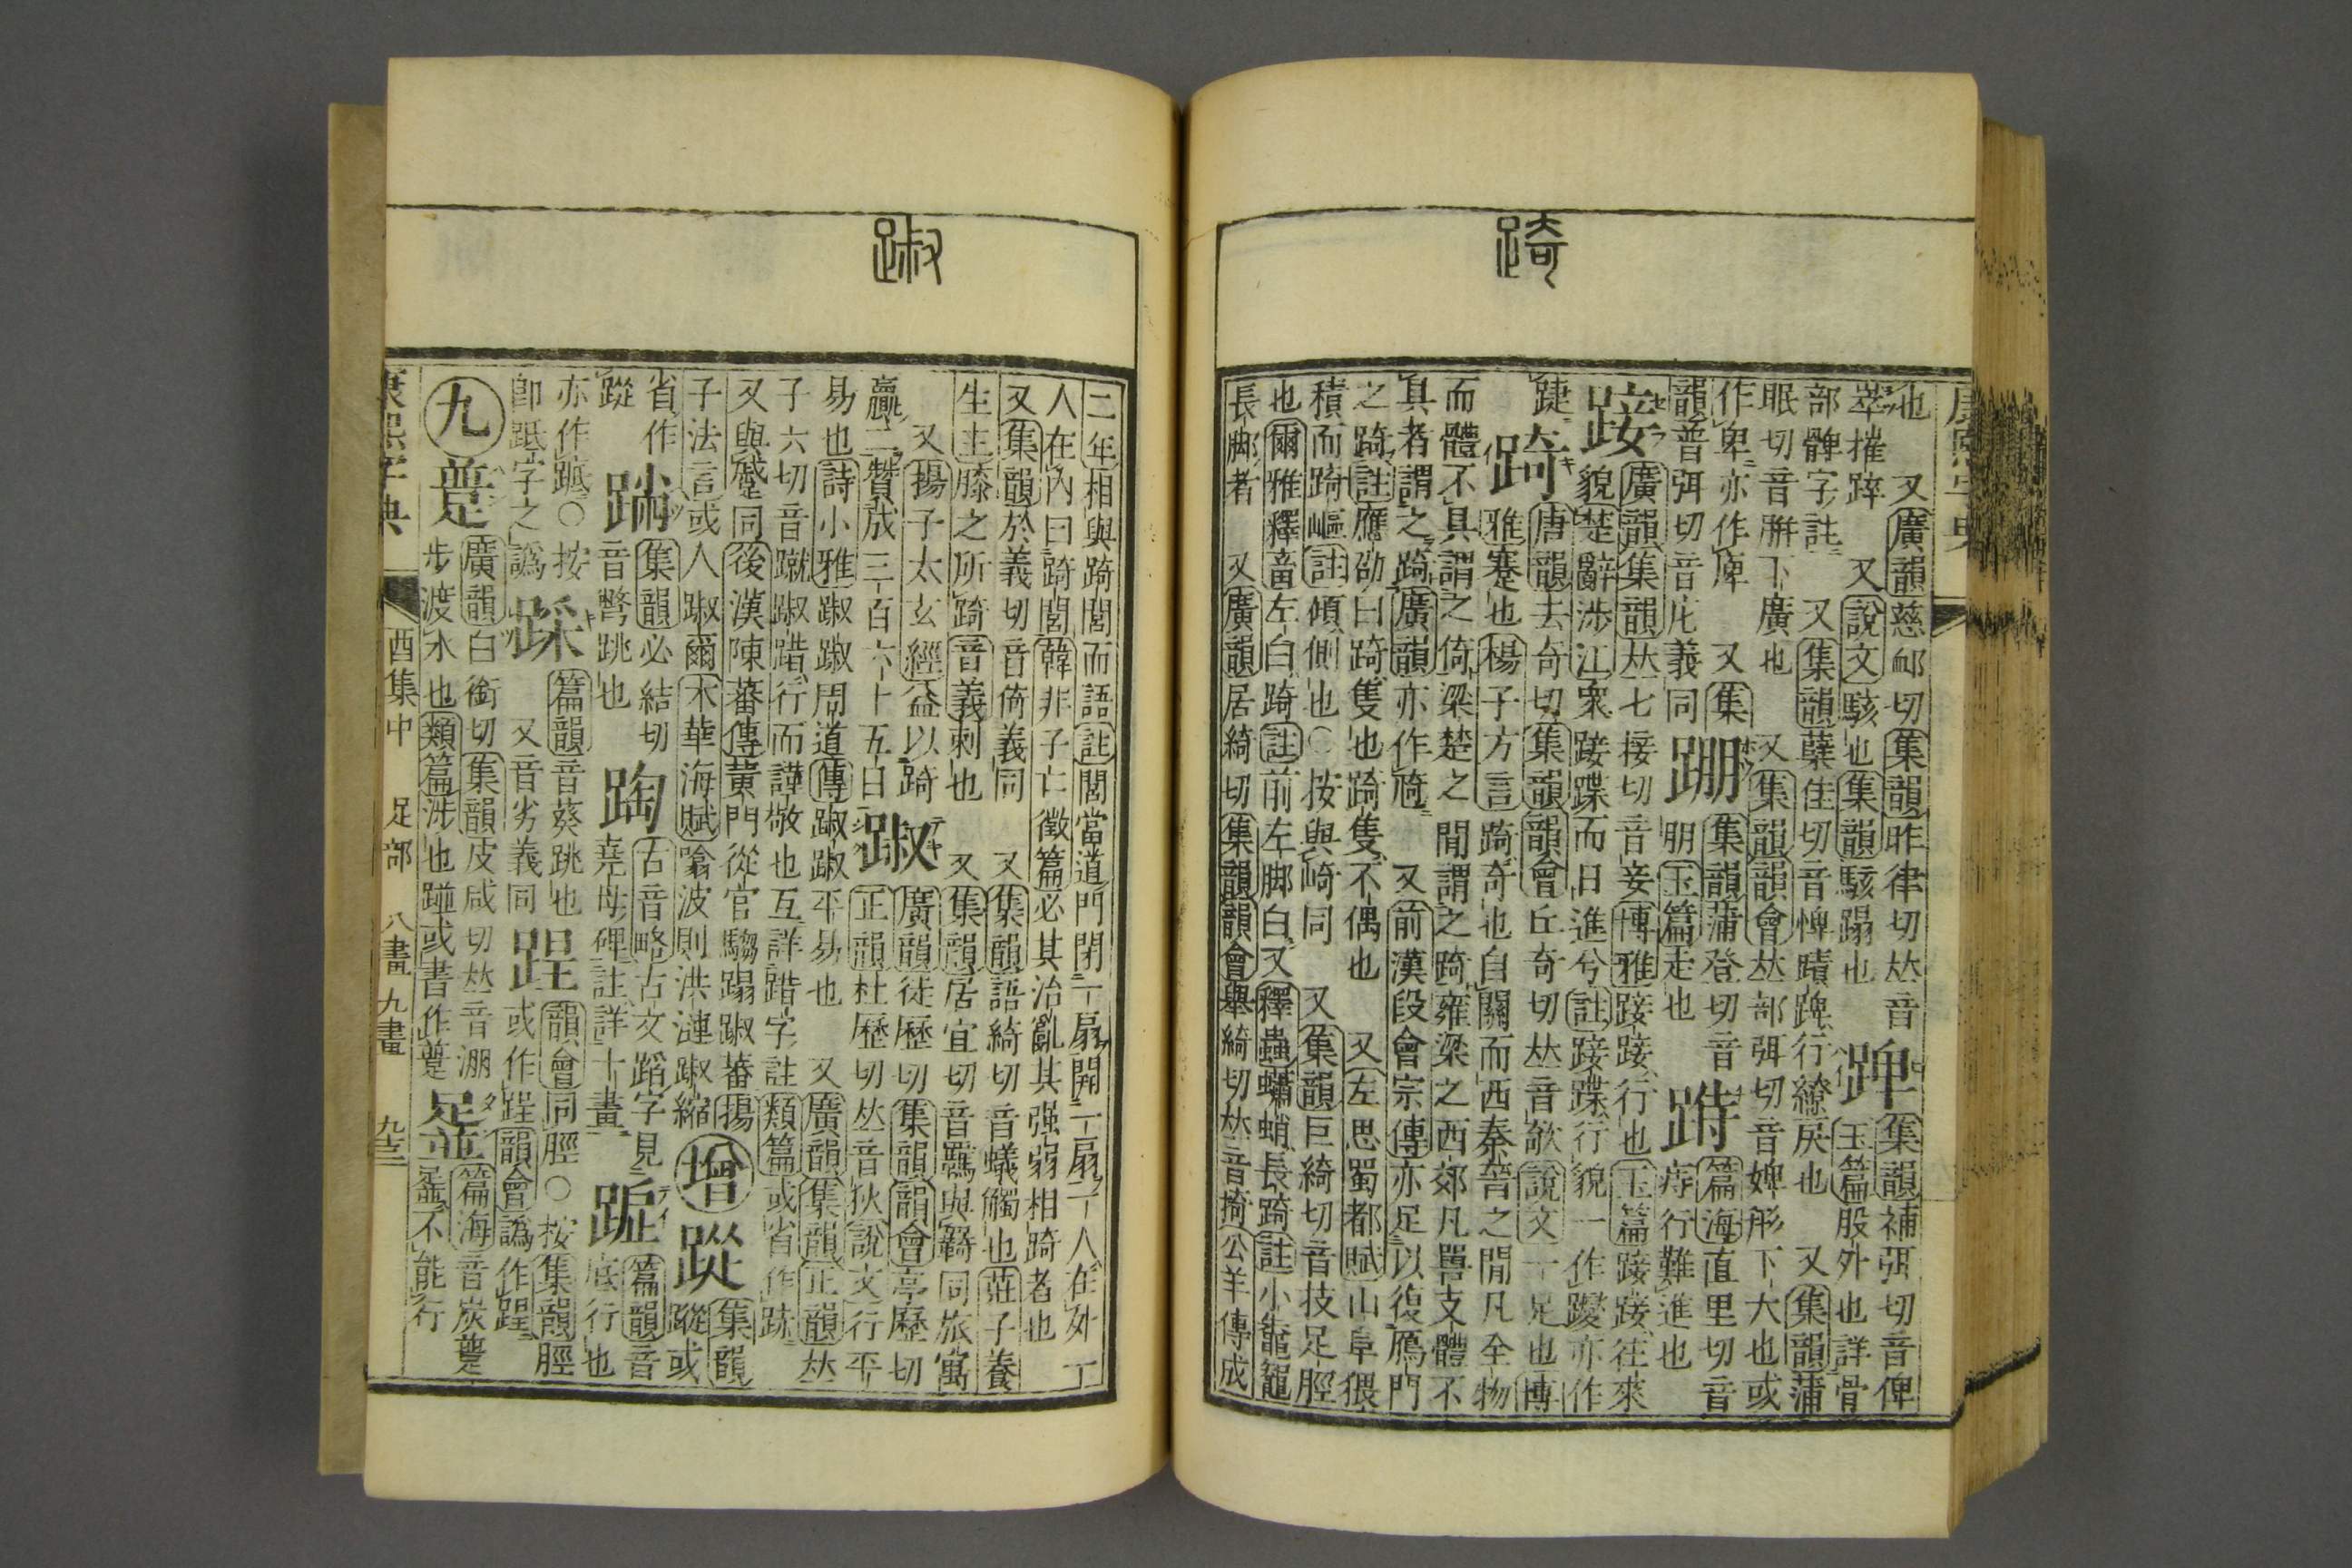 踦
也　又廣韻慈卹切集韻昨律切𠀤音　集韻補弭切音俾
萃摧踤　又說文駭也集韻駭蹋也　玉篇股外也詳骨
部髀字註　又集韻蘗佳切音　行繚戾也　又集韻蒲
眠切音骿下廣也　又集韻韻會𠀤部弭切音婢　下大也或
作卑亦作庳　又集　集韻蒲登切音　篇海直里切音
韻普弭切音庀義同　朋玉篇走也　痔行難進也
踥　廣韻集韻𠀤七接切音妾博雅踥踥行也玉篇踥踥往來
貌楚辭涉江衆踥蹀而日進兮註踥蹀行貌一作躞亦作
踕　踦　唐韻去奇切集韻韻會丘奇切𠀤音欹說文一足也博
雅蹇也楊子方言踦奇也自關而西秦晉之閒凡全物
而體不具謂之倚梁楚之閒謂之踦雍梁之西郊凡嘼支體不
具者謂之踦廣韻亦作　又前漢段會宗傳亦足以復鴈門
之踦註應劭曰踦隻也踦隻不偶也　又左思蜀都賦山阜猥
積而踦嶇註傾側也○按與崎同　又集韻巨綺切音技足脛
也爾雅釋畜左白踦註前左脚白又釋蟲蠨蛸長踦註小鼅鼄
長脚者　又廣韻居綺切集韻韻會舉綺切𠀤音掎公羊傳成
踧
二年相與踦閭而語註閭當道門閉一扇開一扇一人在外一
人在內曰踦閭韓非子亡徵篇必其治亂其强弱相踦者也
又集韻於義切音倚義同　又集韻語綺切音螘觸也莊子養
生主膝之所踦音義刺也　又集韻居宜切音羈與羇同旅寓
也　又揚子太玄經益以踦　踧　廣韻徒歷切集韻韻會亭歷切
贏二贊成三百六十五日　正韻杜歷切𠀤音狄說文行平
易也詩小雅踧踧周道傳踧踧平易也　又廣韻集韻正韻𠀤
子六切音蹴踧踖行而謹敬也互詳踖字註類篇或省作
又與蹙同後漢陳蕃傳黃門從官騶蹋踧蕃揚
子法言或人踧爾木華海賦噏波則洪漣踧縮　增　集韻
省作　集韻必結切　古音略古文蹈字見　篇韻音
音彆跳也　陶　堯母碑註詳十畫　底行也
亦作　○按　篇韻音葵跳也　韻會同脛○按集韻脛
卽跖字之譌　又音劣義同　或作踁韻會譌作
九　廣韻白銜切集韻皮咸切𠀤音湴　篇海音炭
步渡水也類篇涉也踫或書作　不能行
康熙字典　酉集中　足部　八畫　九畫　九三